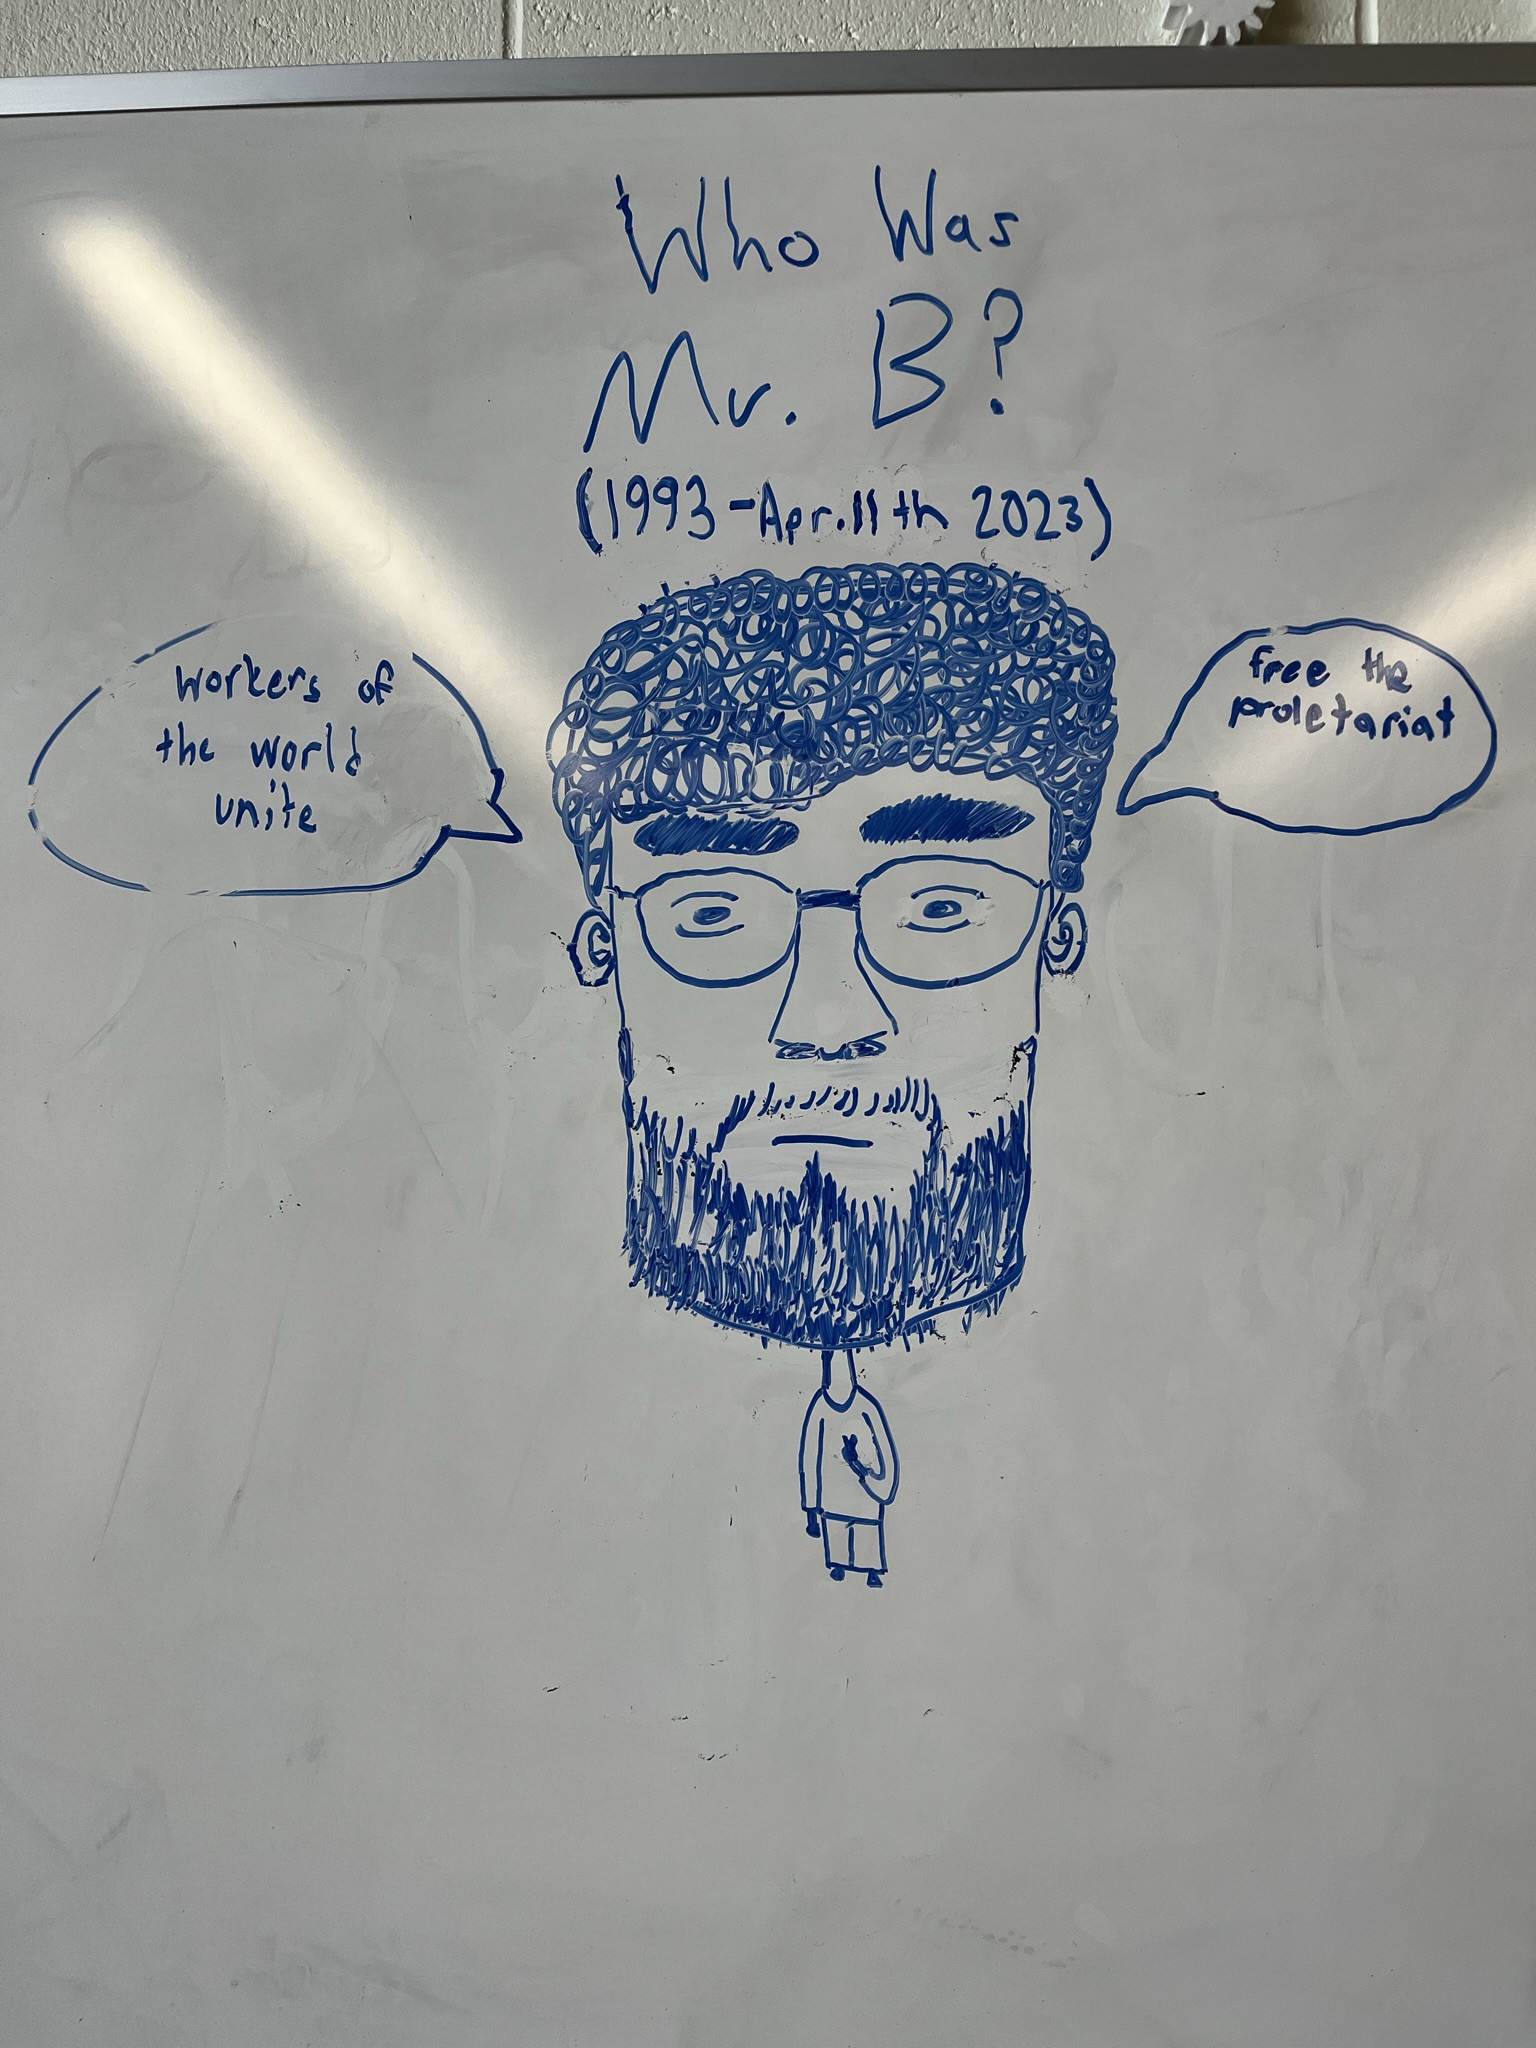 Who Was
Mr. B?
(1993-Apr.11th 2023)
workers of
the world
unite
free the
proletariat